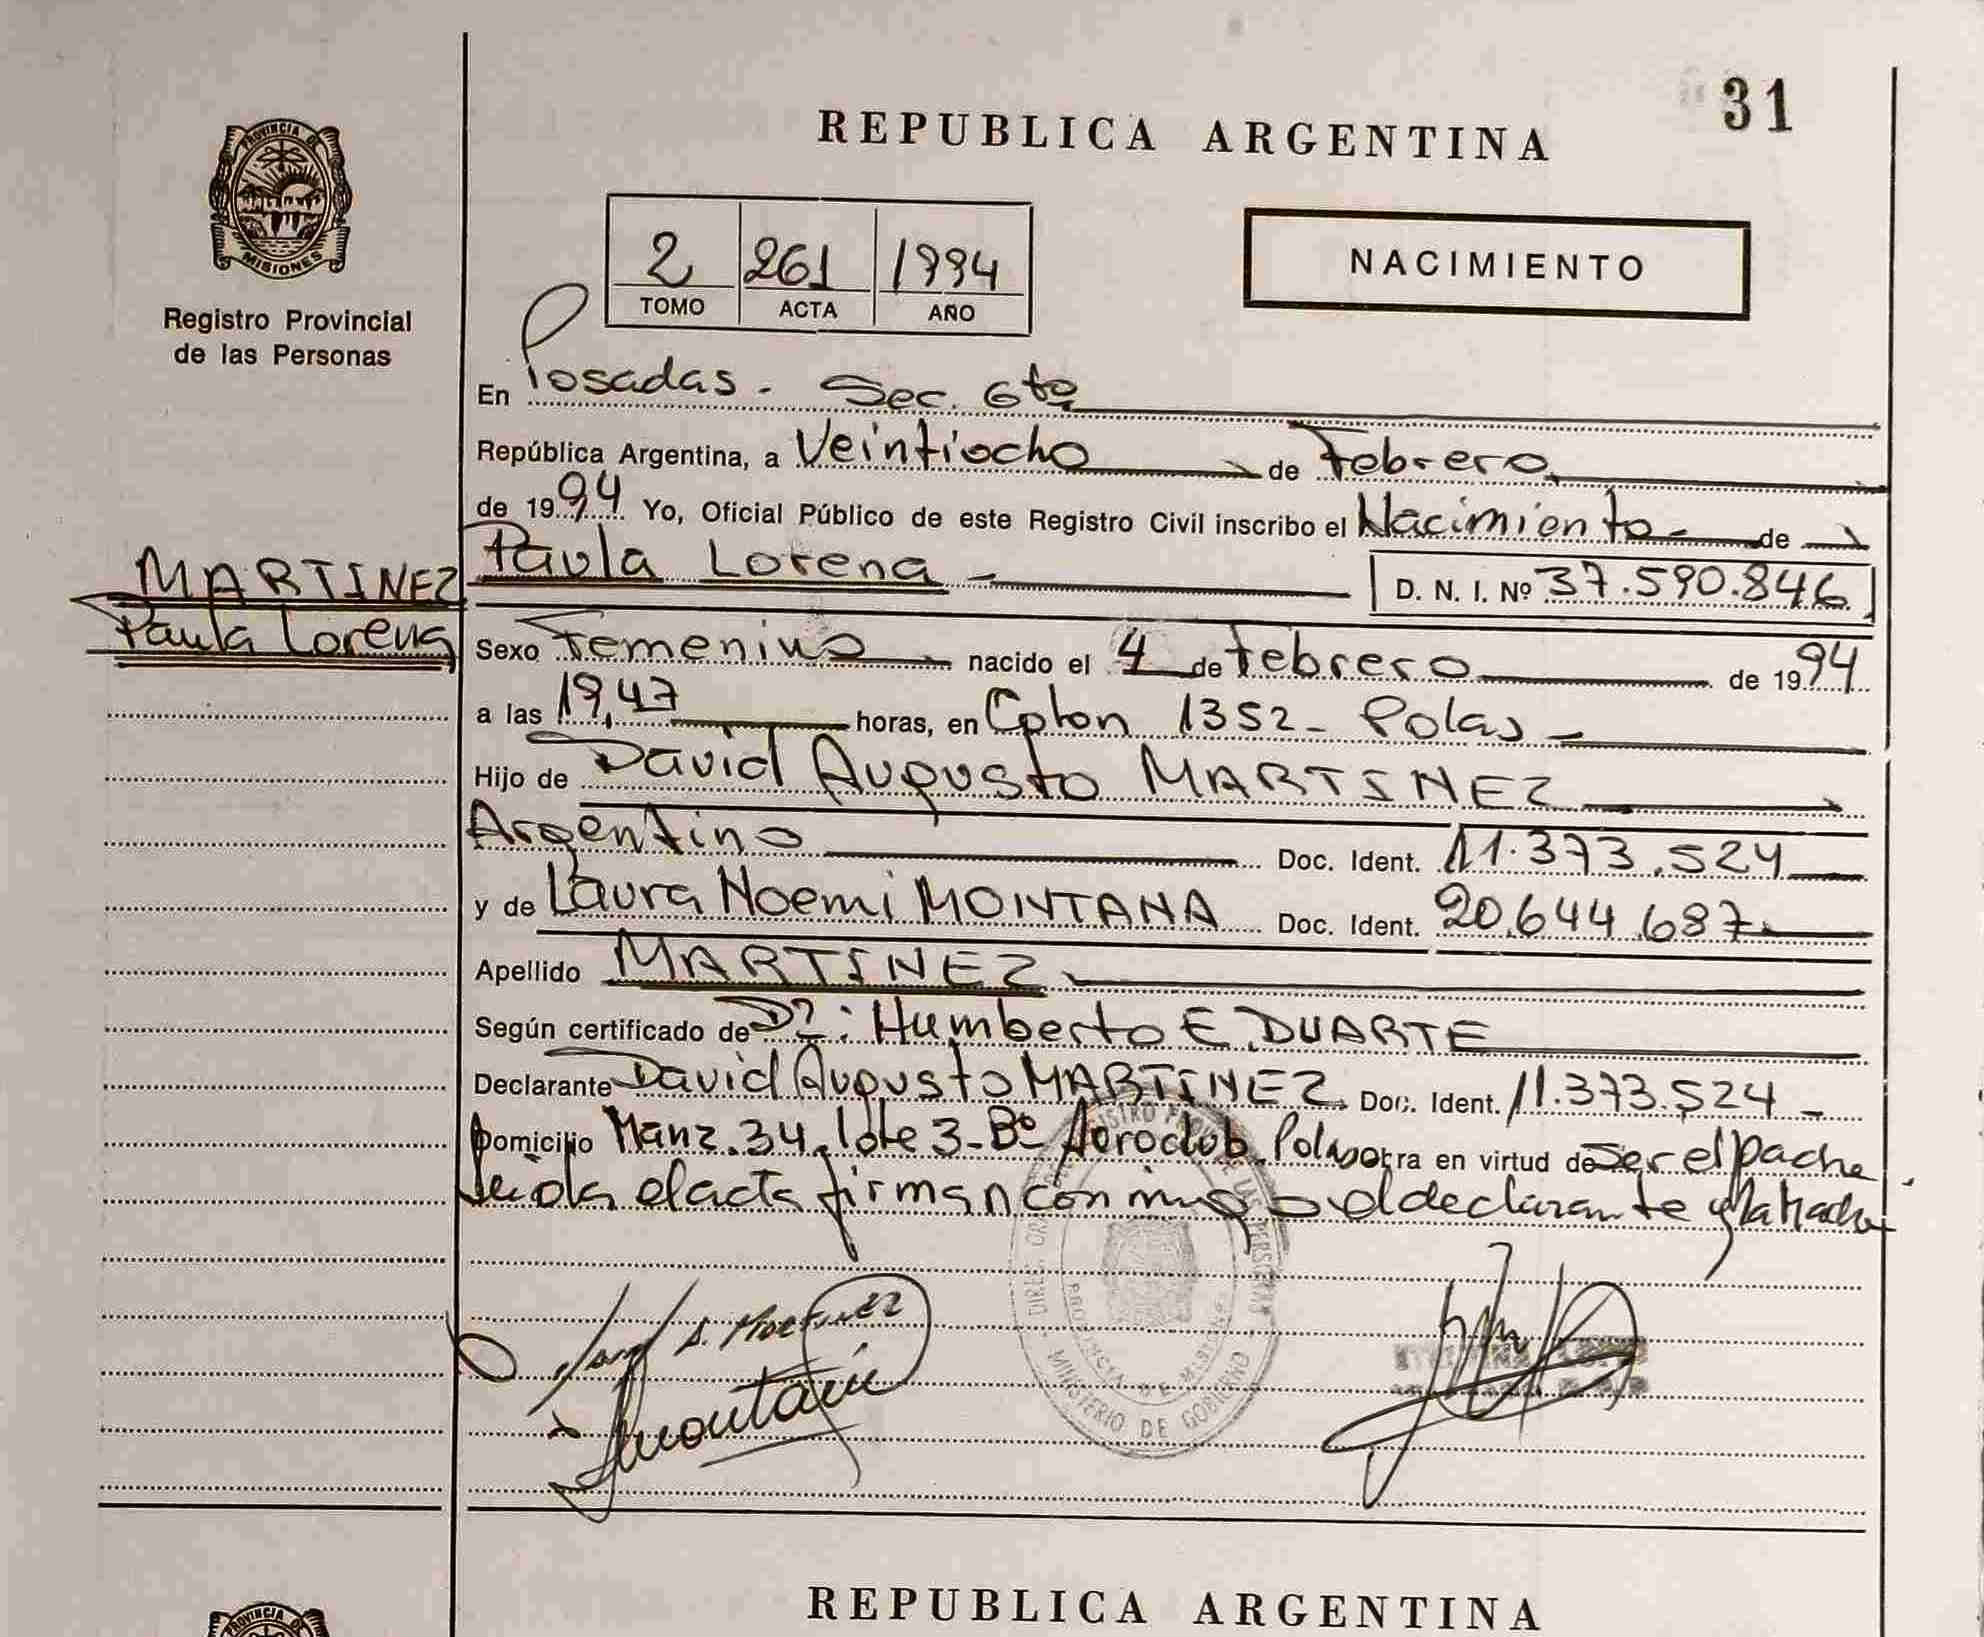 31
REPUBLICA ARGENTINA
PROVINCIA DE
MISIONES
Registro Provincial
de las Personas
2 261 1994
TOMO ACTA AÑO
NACIMIENTO
En Posadas - Sec. 6ta
República Argentina, a Veintiocho de Febrero
de 1994 Yo, Oficial Público de este Registro Civil inscribo el Nacimiento - de
MARTINEZ
Paula Lorena
Paula Lorena - D. N. I. Nº 37.590.846
Sexo Femenino nacido el 4 de Febrero de 1994
a las 19,47 horas, en Colon 1352 - Pdas -
Hijo de David Augusto MARTINEZ
Argentino Doc. Ident. 11.373.524
y de Laura Noemi MONTANA Doc. Ident. 20.644.687
Apellido MARTINEZ
Según certificado de Dr: Humberto E. DUARTE
Declarante David Augusto MARTINEZ Doc. Ident. 11.373.524 -
Domicilio Manz. 34, lote 3 - Bº Aeroclub Pdas obra en virtud de ser el padre
leida el acta firman conmigo el declarante y la Madre
A. Martinez
MINISTERIO DE GOBIERNO
REPUBLICA ARGENTINA
PROVINCIA DE